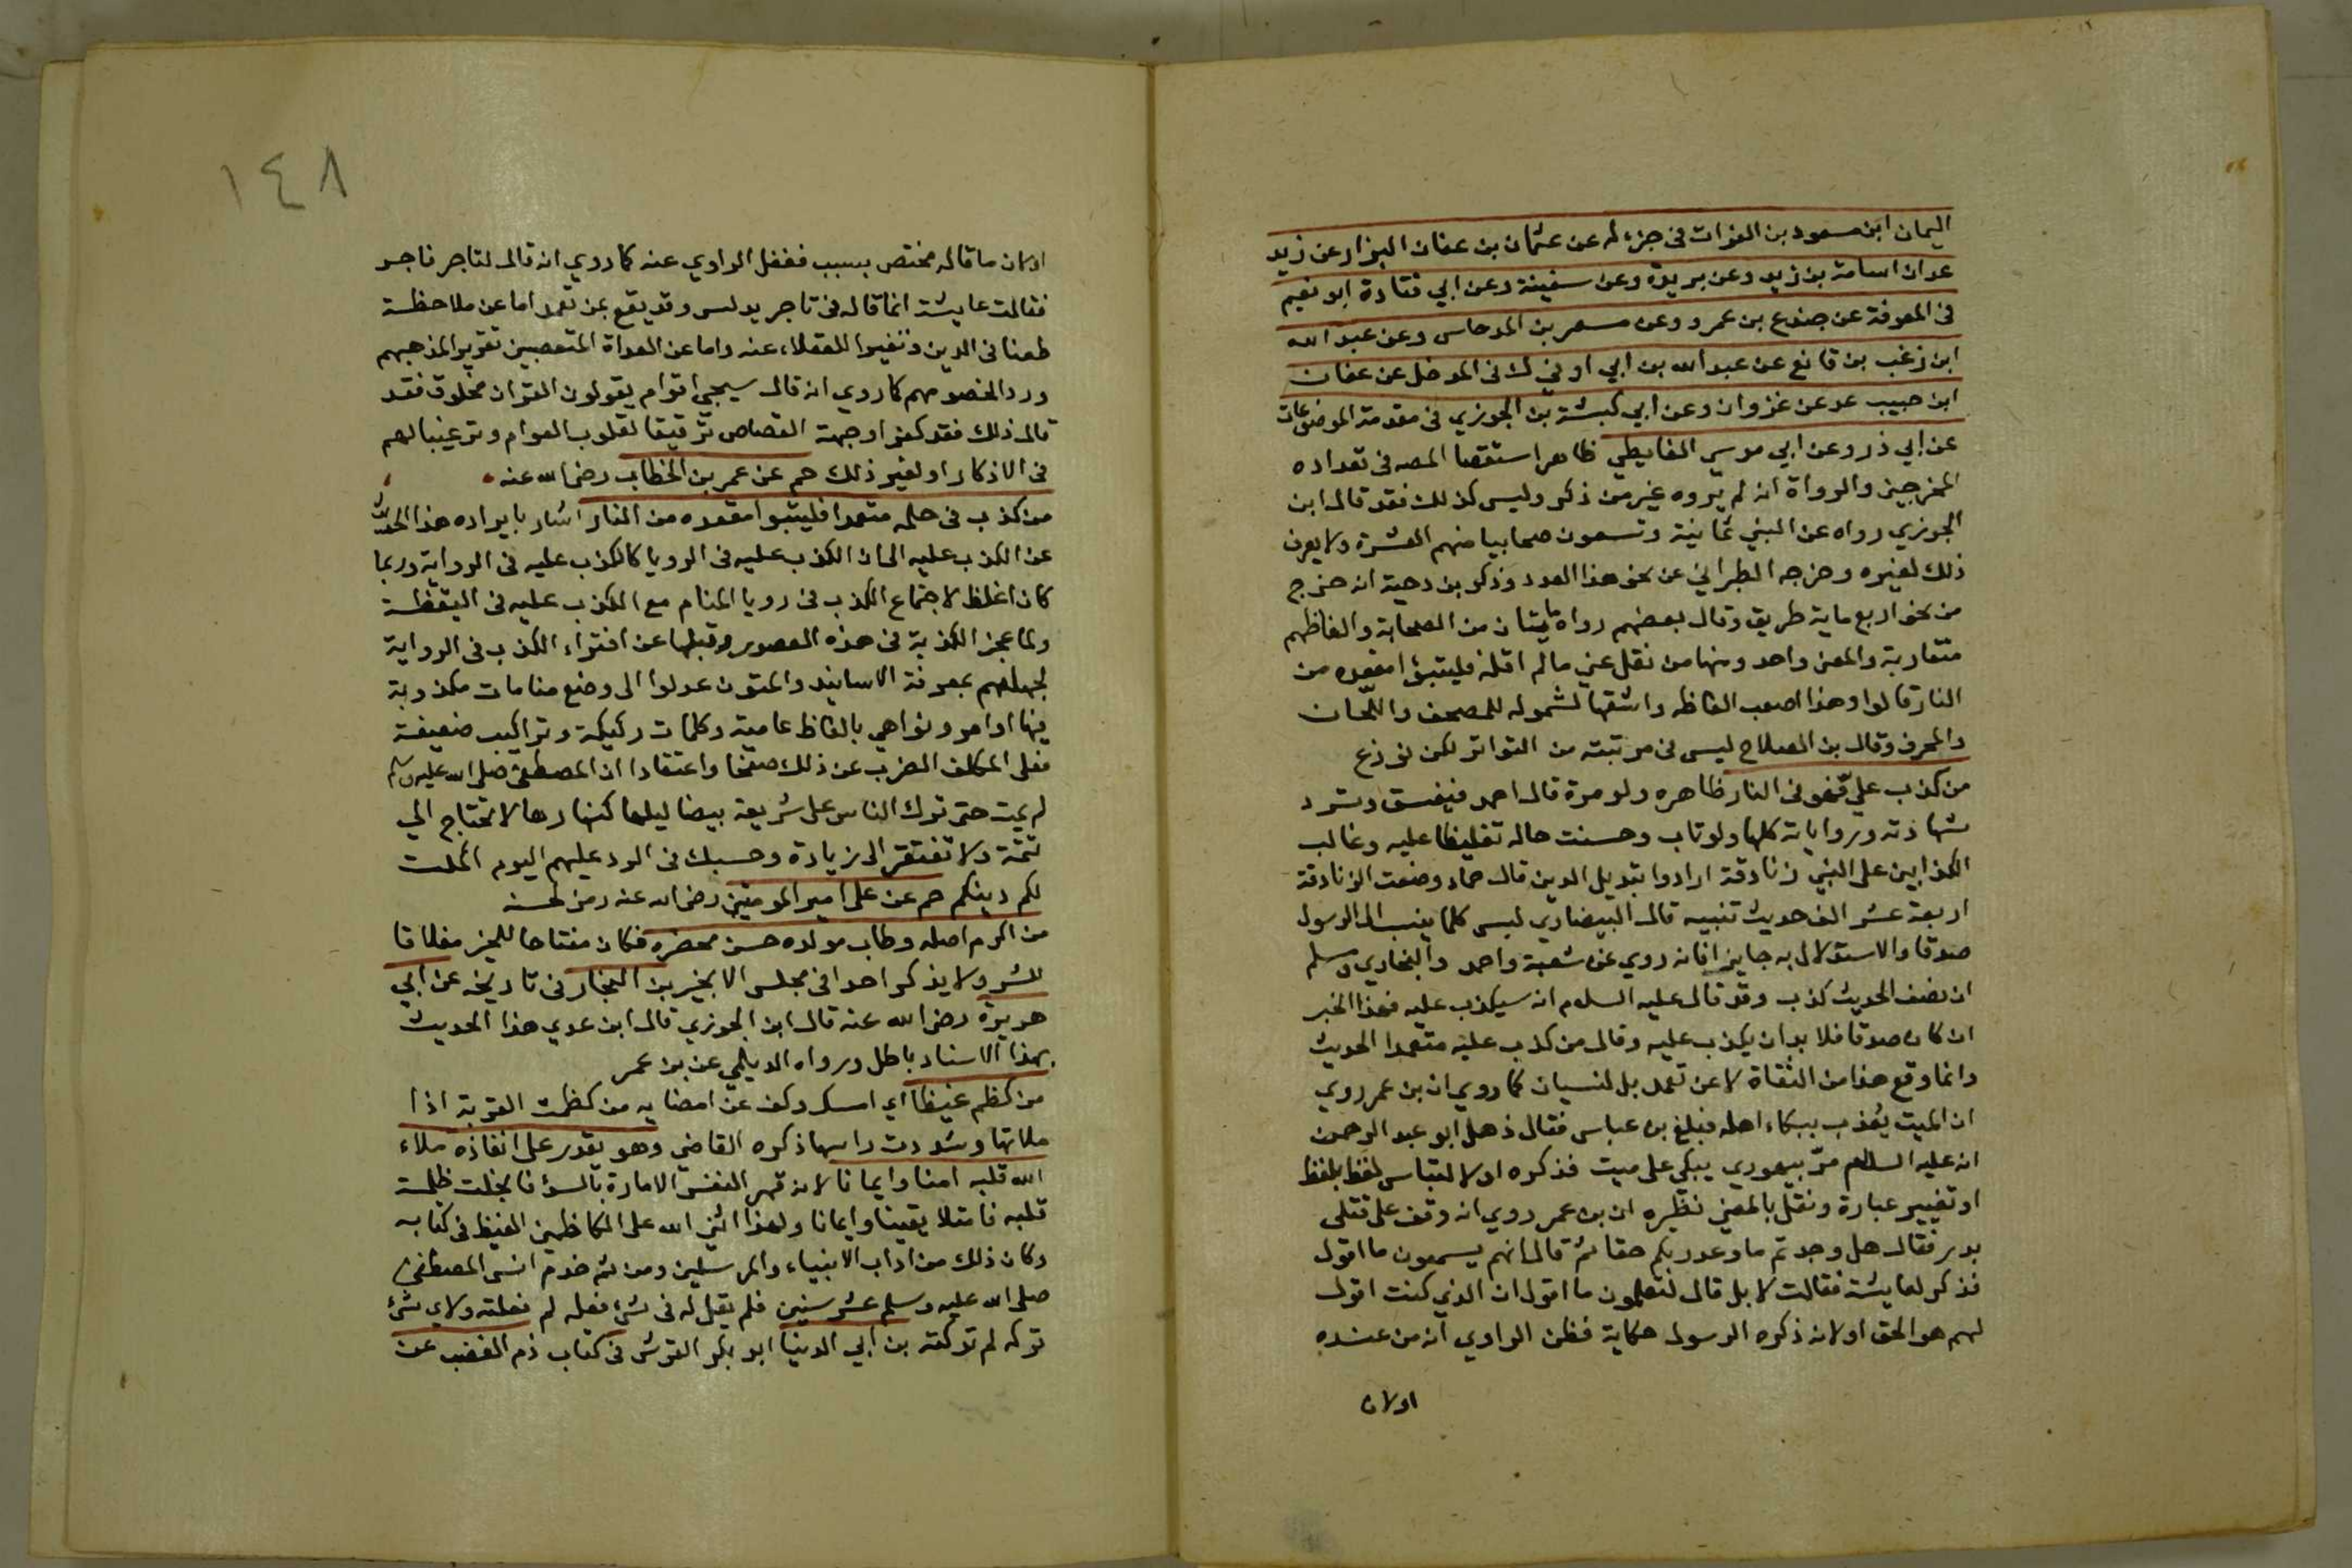 اليمان ابن مسعود بن الفرات فى جزء له عن عثمان بن عفان البزار عن زيد
عد ان اسامة بن زيد وعن بريدة وعن سفينة وعن ابي قتادة ابو نعيم
فى المعرفة عن جندع بن عمرو وعن سعر بن المدحاس وعن عبد الله
ابن زغب بن قانع عن عبد الله بن ابي اوفي ك فى المدخل عن عفان
ابن حبيب عد عن غزوان وعن ابي كبشة بن الجوزي فى مقدمة الموضوعات
عن ابي ذر وعن ابي موسى الغافيطي ظاهر استقصا المصه فى تعداده
المخرجين والرواة انه لم يروه غير من ذكر وليس كذلك فقد قال ابن
الجوزي رواه عن النبي ثمانية وتسعون صحابيا منهم العشرة ولا يعرف
ذلك لغيره وخرجه الطبراني عن نحو هذا العدد وذكر بن دحية انه خرج
من نحو اربع ماية طريق وقال بعضهم رواه مايتان من الصحابة والفاظهم
متقاربة والمعنى واحد ومنها من نقل عني مالم اقله فليتبوٱ مقعده من
النار قالوا وهذا اصعب الفاظه واشقها لشموله للمصحف واللحّان
والمحرف وقال بن الصلاح ليس فى مرتبته من التواتر لكن نوزع
من كذب عليّ فهو فى النار ظاهره ولو مرة قال احمد فيفسق وترد
شهادته ورواياته كلها ولو تاب وحسنت حاله تغليظا عليه وغالب
الكذابين على النبي زنادقة ارادوا تبديل الدين قال حماد وضعت الزنادقة
اربعة عشر الف حديث تنبيه قال البيضاوي ليس كلما ينسب الى الرسول
صدقا والاستدلال به جايزا فانه روي عن شعبة واحمد والبخاري ومسلم
ان نصف الحديث كذب وقد قال عليه السلام انه سيكذب عليه فهذا الخبر
ان كان صدقا فلا بد ان يكذب عليه وقال من كذب عليه متعمدا الحديث
وانما وقع هذا من الثقاة لا عن تعمد بل لنسيان كما روي ان بن عمر روي
ان الميت يُعذب ببكاء اهله فبلغ بن عباس فقال ذهل ابو عبد الرحمن
انه عليه السلام مرّ بيهودي يبكي على ميت فذكره او لالتباس لفظ بلفظ
او تغيير عبارة ونقل بالمعني نظيره ان بن عمر روي انه وقف على قتلى
بدر فقال هل وجدتم ما وعد ربكم حقا ثم قال انهم يسمعون ما اقول
فذكر لعايشة فقالت لا بل قال لتعلمون ما اقول ان الذي كنت اقول
لهم هو الحق او لانه ذكره الرسول حكاية فظن الراوي انه من عنده
اولان
١٤٨
اولان ما قاله مختص بسبب فغفل الراوي عنه كما روي انه قال لتاجر فاجر
فقالت عايشة انما قاله فى تاجر يدلس وقد يقع عن تعمد اما عن ملاحظة
طعنا فى الدين وتنفيرا للعقلاء عنه واما عن العداة المتعصبين تقريرا لمذهبهم
وردا لخصومهم كما روي انه قال سيجي اقوام يقولون القران مخلوق فقد
قال ذلك فقد كفر او جهته القصاص ترقيقا لقلوب العوام وترغيبا لهم
فى الاذكار او لغير ذلك حم عن عمر بن الخطاب رضى الله عنه
من كذب فى حلمه متعمدا فليتبوا مقعده من النار اشار بايراده هذا الحديث
عن الكذب عليه الى ان الكذب عليه فى الرويا كالكذب عليه فى الرواية وربما
كان اغلظ لاجتماع الكذب فى رويا المنام مع الكذب عليه فى اليقظة
ولما عجز الكذبة فى هذه العصور وقبلها عن افتراء الكذب فى الرواية
لجهلهم بمعرفة الاسانيد والمتون عدلوا الى وضع منامات مكذوبة
فيها اوامر ونواهي بالفاظ عامية وكلمات ركيكة وتراكيب ضعيفة
فعلى المكلف الضرب عن ذلك صفحا واعتقادا ان المصطفى صلى الله عليه وسلم
لم يمت حتى ترك الناس على شريعة بيضا ليلها كنهارها لا تحتاج الي
تتمة ولا تفتقر الى زيادة وحسبك فى الرد عليهم اليوم اكملت
لكم دينكم حم عن على امير المومنين رضى الله عنه رمز لحسنه
من اكرم اصله وطاب مولده حسن محضره فكان مفتاحا للخير مغلاقا
للشر ولا يذكر احدا فى مجلس الا بخير بن النجار فى تاريخه عن ابي
هريرة رضى الله عنه قال ابن الجوزي قال ابن عدي هذا الحديث
بهذا الاسناد باطل ورواه الديلمي عن بن عمر
من كظم غيظا اي امسك وكف عن امضايه من كظمت القربة اذا
ملاتها وشددت راسها ذكره القاضي وهو يقدر على انفاذه ملاء
الله قلبه امنا وايمانا لانه قهر النفس الامارة بالسوء فانجلت ظلمة
قلبه فامتلا يقينا وايمانا ولهذا اثنى الله على الكاظمين الغيظ فى كتابه
وكان ذلك من اداب الانبياء والمرسلين ومن ثم خدم انس المصطفى
صلى الله عليه وسلم عشر سنين فلم يقل له فى شيء فعله لم فعلته ولا لشيء
تركه لم تركته بن ابي الدنيا ابو بكر القرشى فى كتاب ذم الغضب عن